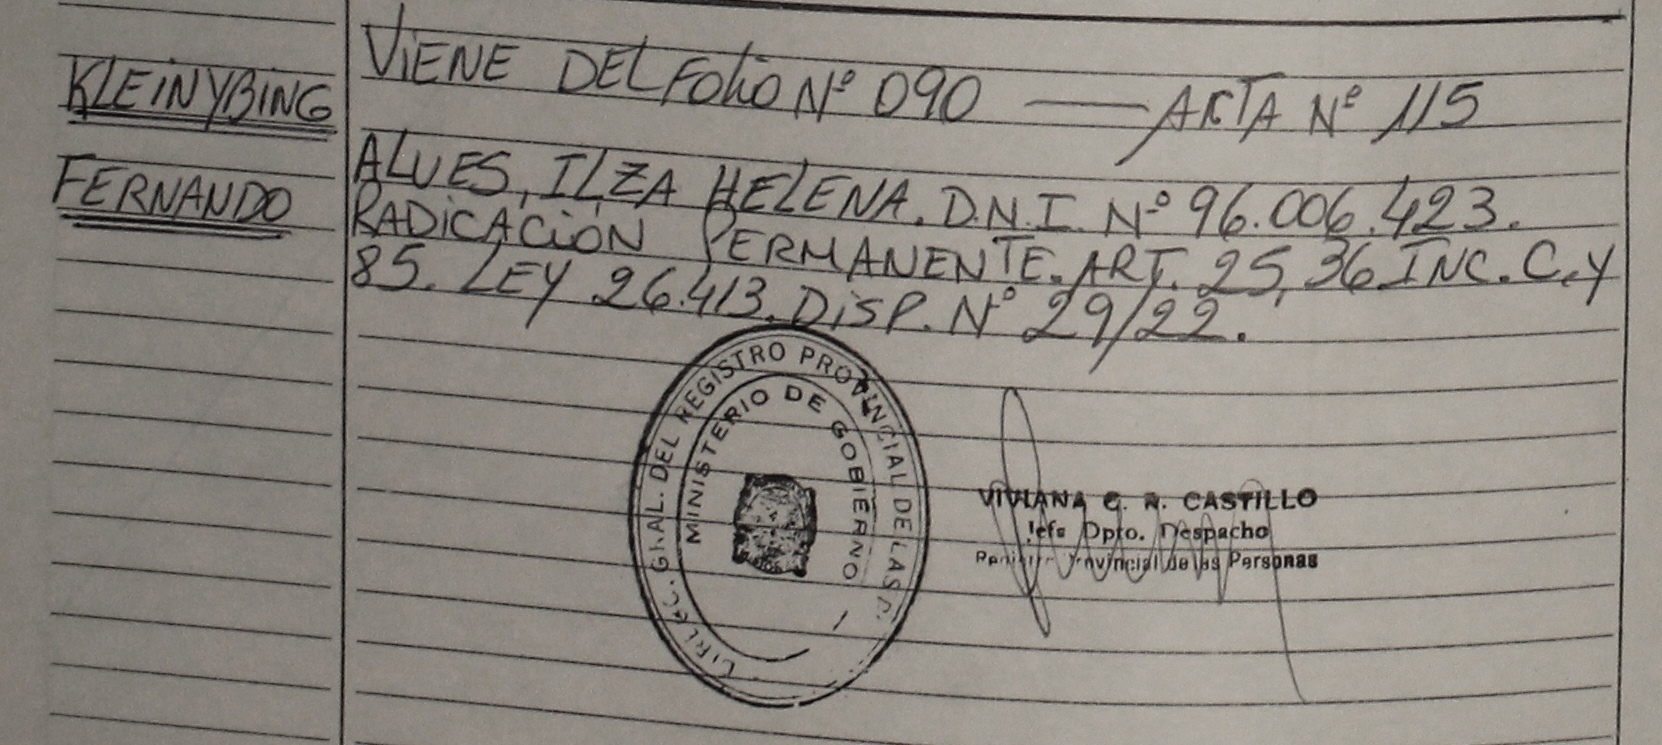 KLEINYBING
FERNANDO
VIENE DEL FOLIO Nº 090 — ACTA Nº 115
ALVES, ILZA HELENA. D.N.I. Nº 96.006.423.
RADICACIÓN PERMANENTE. ART. 25, 36 INC. C. Y
85. LEY 26.413. DISP. Nº 29/22.
GRAL. DEL REGISTRO PROVINCIAL DE LAS P.
MINISTERIO DE GOBIERNO
VIVIANA C. R. CASTILLO
Jefe Dpto. Despacho
Provincial de las Personas